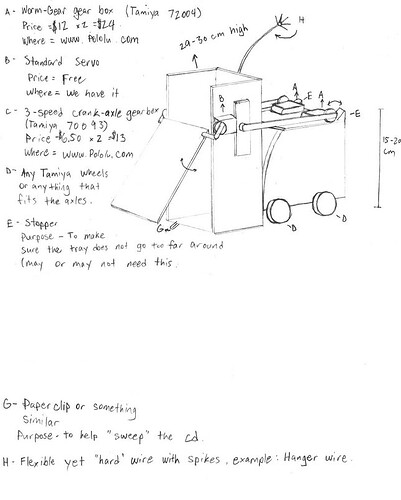 A- Worm-Gear gear box (Tamiya 72004)
Price = $12 x 2 = $24
Where = www.Pololu.com
B- Standard Servo
Price = Free
Where = We have it
C- 3-speed crank-axle gearbox
(Tamiya 70093)
Price = $6.50 x 2 = $13
Where = www.Pololu.com
D- Any Tamiya wheels
or anything that
fits the axles.
E- Stopper
Purpose - To make
sure the tray does not go too far around
(may or may not need this.
29-30 cm high
H
B
A
E
A
E
15-20
cm
G
D
D
G- Paper clip or something
Similar
Purpose - to help "sweep" the cd.
H- Flexible yet "hard" wire with spikes, example: Hanger wire.